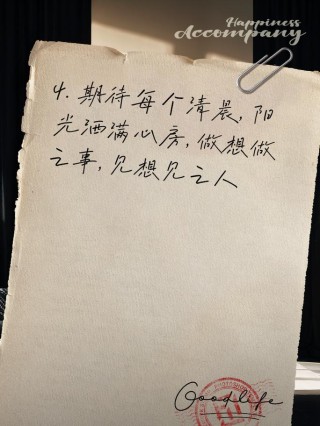 Happiness
Accompany
4. 期待每个清晨, 阳
光洒满心房, 做想做
之事, 见想见之人
Goodlife